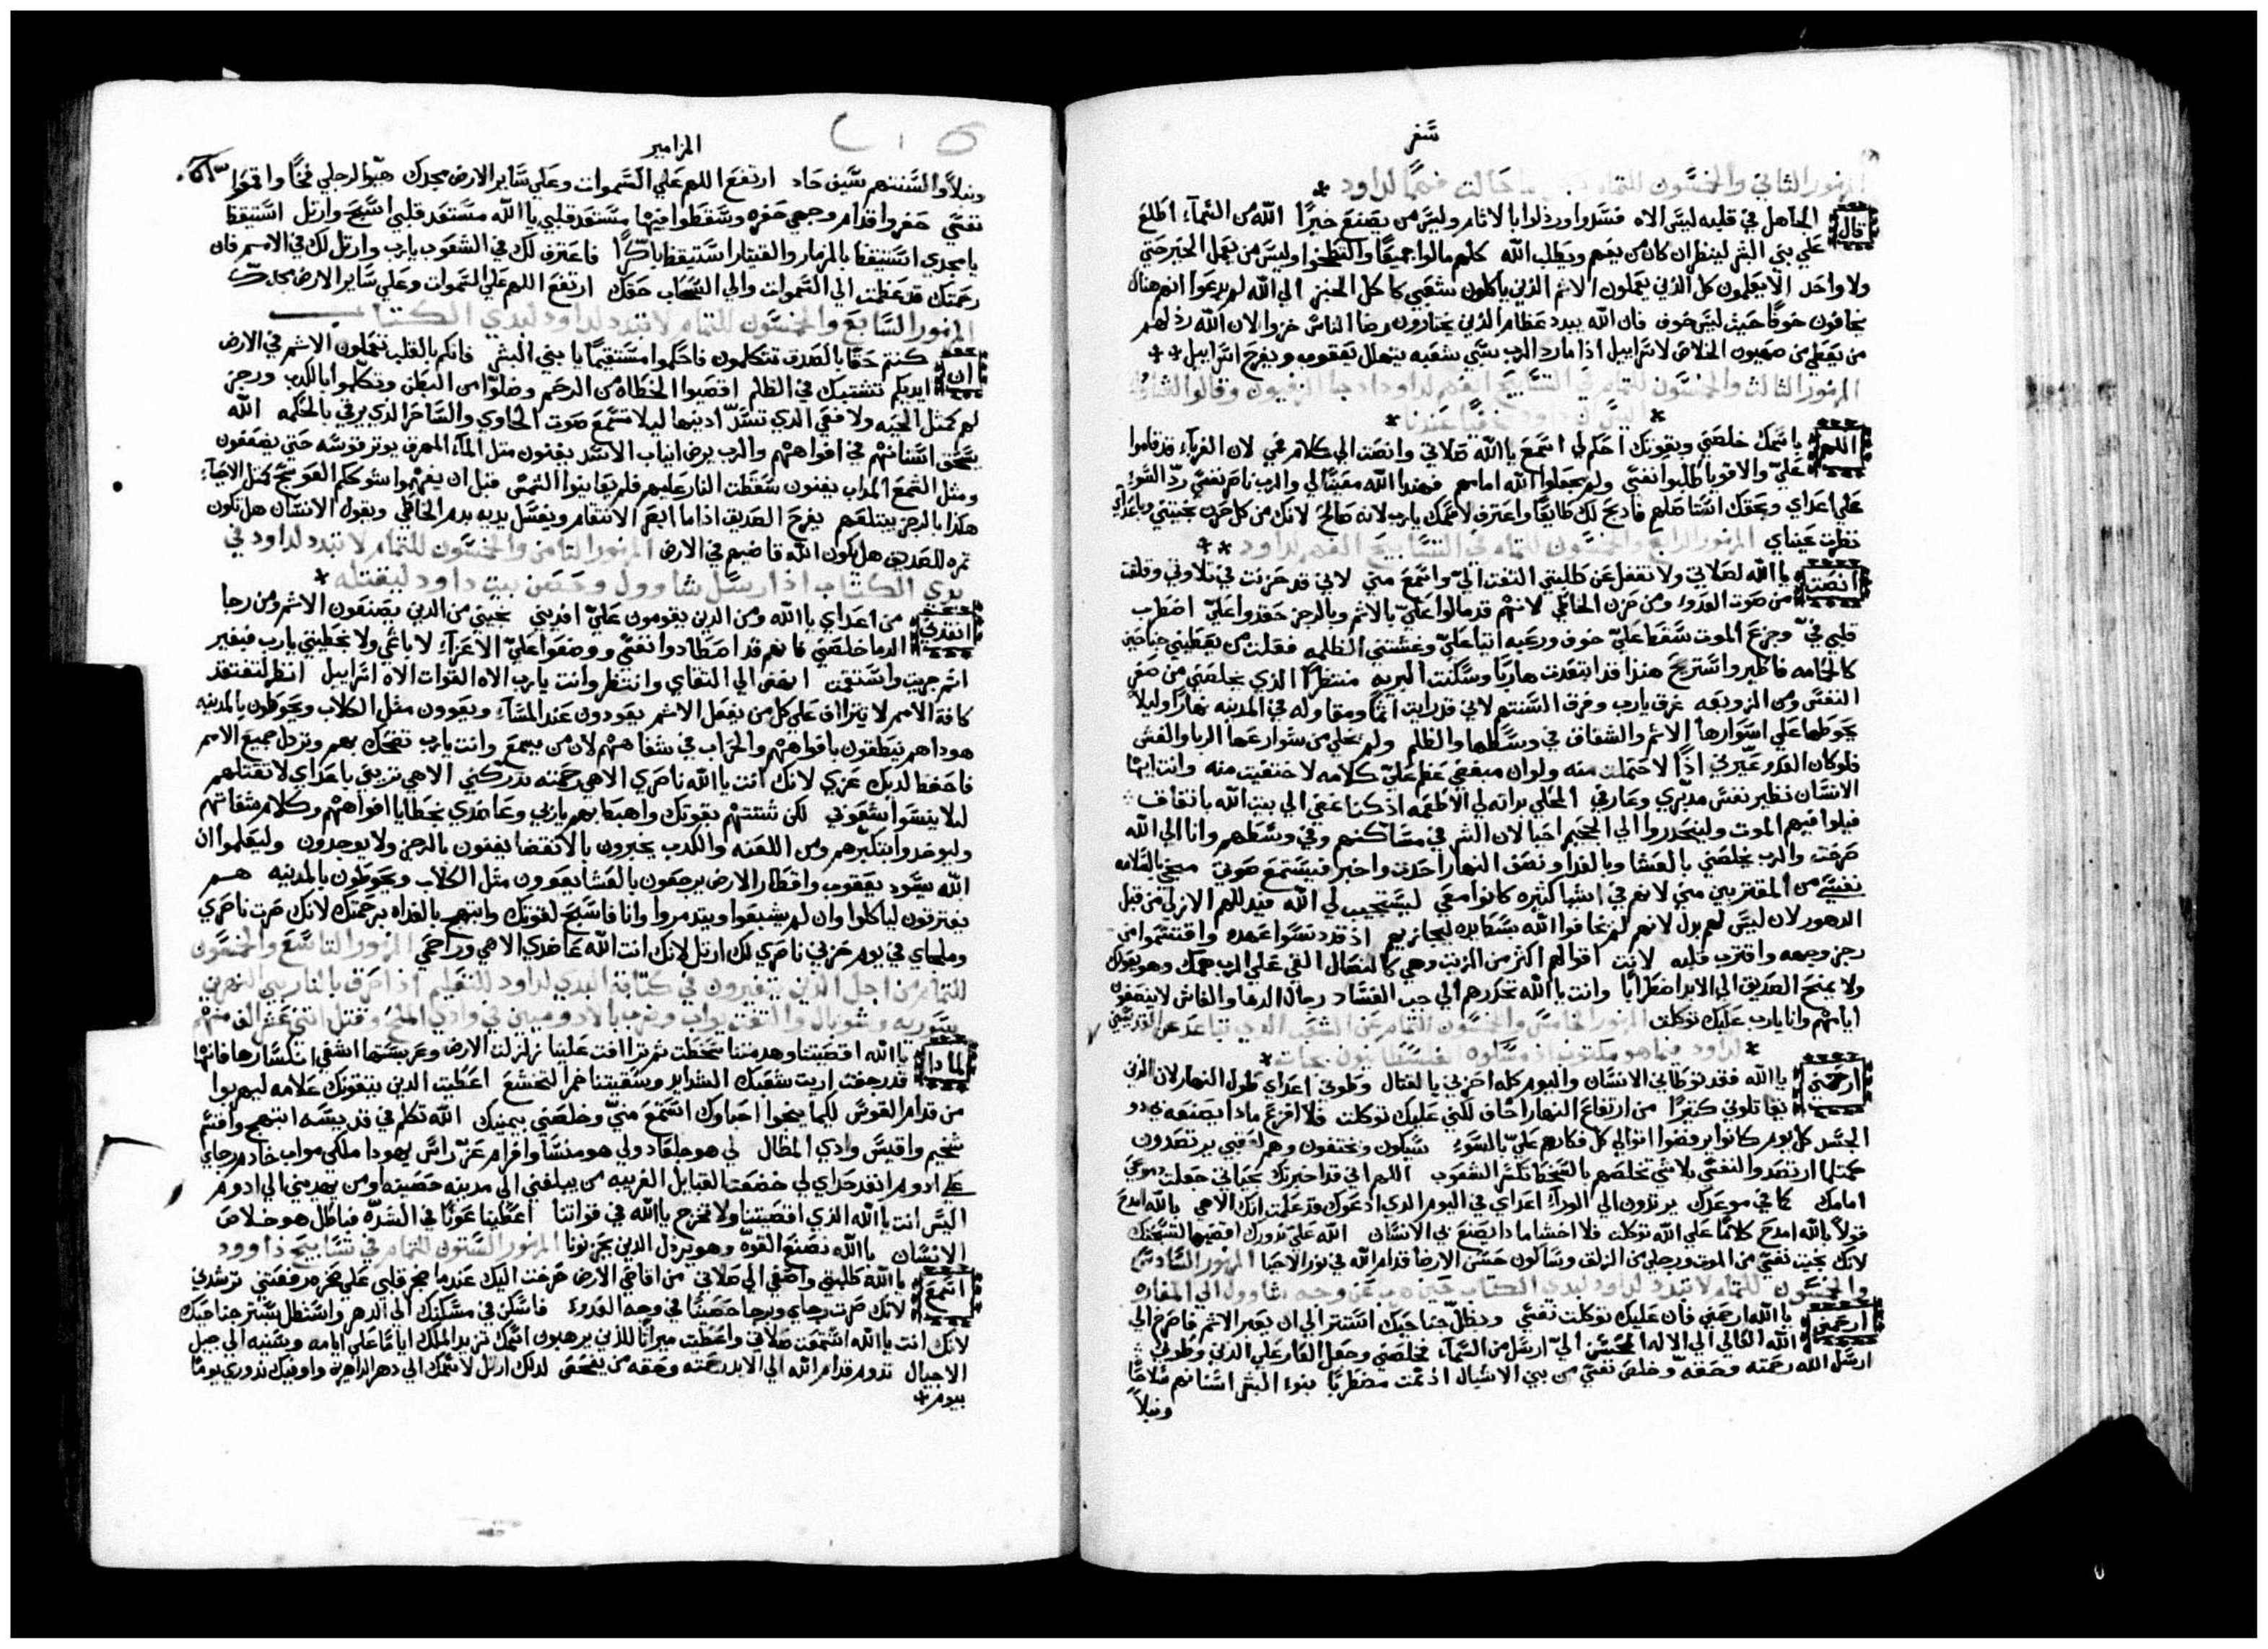 سفر
المزمور الثاني والخمسون للتمام فهمًا لداود
قال الجاهل في قلبه ليس الاه فسدوا ورذلوا بالاثام وليس من يصنع خيرًا الله من السماء اطلع
علي بني البشر لينظر ان كان من يفهم ويطلب الله كلهم مالوا جميعًا والتطخوا وليس من يعمل الخير حتي
ولا واحد الا يعلمون كل الذين يعملون الاثم الذين ياكلون شعبي كاكل الخبز الي الله لم يدعوا انهم هناك
يخافون خوفًا حيث ليس خوف فان الله يبدد عظام الذين يختارون رضا الناس خزوا لان الله رذلهم
من يعطي من صهيون الخلاص لاسراييل اذا ما رد الرب سبي شعبه يتهلل يعقوب ويفرح اسراييل
المزمور الثالث والخمسون للتمام في التسابيح الفهم لداود اذ جا الزيفيون وقالوا لشاول
اليس داود مختفيًا عندنا
اللهم باسمك خلصني وبقوتك احكم لي استمع يا الله صلاتي وانصت الي كلام فمي لان الغرباء قد قاموا
علي والاقويا طلبوا نفسي ولم يجعلوا الله امامهم فهوذا الله معينًا لي والرب ناصر نفسي ردّ السوء
علي اعداي وبحقك استاصلهم فاذبح لك طايعًا واعترف لاسمك يارب لانه صالح لانك من كل حزن نجيتني وباعداي
نظرت عيناي المزمور الرابع والخمسون للتمام في التسابيح الفهم لداود
انصت يا الله لصلاتي ولا تغفل عن طلبتي التفت الي واستمع مني لاني قد حزنت في تلاوتي وقلقت
من صوت العدو ومن حزن الخاطي لانهم قد مالوا علي بالاثم وبالرجز حقدوا علي اضطرب
قلبي فيّ وجزع الموت سقط علي خوف ورعبه اتيا علي وغشتني الظلمه فقلت من يعطيني جناحين
كالحمامه فاطير واستريح هوذا قد ابتعدت هاربًا وسكنت البريه منتظرًا الذي يخلصني من صغر
النفس ومن الزوبعه غرق يارب وفرق السنتهم لاني قد رايت اثمًا ومقاوله في المدينه نهارًا وليلاً
يحوطها علي اسوارها الاثم والشقاق في وسطها والظلم ولم يخلي من شوارعها الربا والغش
فلو كان العدو عيّرني اذًا لاحتملت منه ولو ان مبغضي عظم علي كلامه لاختفيت منه وانت ايها
الانسان نظير نفسي مدبري وعارفي المحلي بذاته لي الاطعمه اذ كنا نمضي الي بيت الله باتفاق
فيلوافيهم الموت ولينحدروا الي الجحيم احيا لان الشر في مساكنهم وفي وسطهم وانا الي الله
صرخت والرب يخلصني بالعشا وبالغدا ونصف النهار احدث واخبر فيستمع صوتي مينجي بالسلامه
نفسي من المقتربين مني لانهم في اشيا كثيره كانوا معي ليستجيب لي الله فيذللهم الازلي من قبل
الدهور لان ليس لهم بدل لانهم لم يخافوا الله بسط يده ليجازيهم اذ قد دنسوا عهده واقتسموا من
رجز وجهه واقترب قلبه لانت اقوالهم اكثر من الزيت وهي كالنصال القي علي الرب همك وهو يعولك
ولا يمنح الصديق الي الابد اضطرابًا وانت يا الله تحدرهم الي جب الفساد رجال الدما والغاش لا ينصفون
ايامهم وانا يارب عليك توكلت المزمور الخامس والخمسون للتمام عن الشعب الذي تباعد عن القديسين
لداود فيما هو مكتوب اذ مسكوه الفلسطانيون بجات
ارحمني يا الله فقد توطاني الانسان واليوم كله احزنني بالقتال وطوني اعداي طول النهار لان الذين
يقاتلوني كثيرًا من ارتفاع النهار اخاف لكني عليك توكلت فلا افزع ماذا يصنعه بي ذو
الجسد كل يوم كانوا يرفضوا اقوالي كل فكارهم علي بالسوء سيكون ويختفون وهم لعقبي يرتصدون
كمثلما ارتصدوا لنفسي بلا شي تخلصهم بالسخط تكسر الشعوب اللهم اني قد اخبرتك بحياتي جعلت دموعي
امامك كما في موعدك يرتدون الي الوراء اعداي في اليوم الذي ادعوك قد علمت انك الاهي بالله امدح
قولاً بالله امدح كلامًا علي الله توكلت فلا اخشا ماذا يصنع بي الانسان الله علي نذورك اقضيها لتسبحتك
لانك نجيت نفسي من الموت ورجلي من الزلق وساكون حسن الارضا قدام الله في نور الاحيا المزمور السادس
والخمسون للتمام لا تبدد لداود لبدي الكتاب حين هرب عن وجه شاوول الي المغاره
ارحمني يا الله ارحمني فان عليك توكلت نفسي وبظل جناحيك استتر الي ان يعبر الاثم فاصرخ الي
الله العالي الي الاله المحسن الي ارسل من السماء فخلصني وجعل العار علي الذين وطوني
ارسل الله رحمته وحقه وخلص نفسي من بين الاشبال اذ نمت مضطربًا بنوا البشر اسنانهم سلاحًا
ونبلاً
المزامير
ونبلاً والسنتهم سيف حاد ارتفع اللهم علي السموات وعلي ساير الارض مجدك هيّوا لرجلي فخًا واقموا
نفسي حفروا قدام وجهي حفره وسقطوا فيها مستعد قلبي يا الله مستعد قلبي اسبح وارتل استيقظ
يا مجدي استيقظ بالمزمار والقيثار استيقظ باكرًا فاعترف لك في الشعوب يارب وارتل لك في الامم فان
رحمتك قد عظمت الي السموات والي السحاب حقك ارتفع اللهم علي السموات وعلي ساير الارض مجدك
المزمور السابع والخمسون للتمام لا تبدد لداود لبدي الكتاب
ان كنتم حقًا بالصدق تتكلمون فاحكموا مستقيمًا يا بني البشر فانكم بالقلب تعملون الاثم في الارض
ايديكم تشتبك في الظلم اقصيوا الخطاه من الرحم وضلوا من البطن وتكلموا بالكذب ورجز
لهم كمثل الحيه ولا فعي الذي تسدّ اذنيها ليلا تسمع صوت الحاوي والساحر الذي يرقي بالحكمه الله
يسحق اسنانهم في افواههم والرب يرض انياب الاسد يفنون مثل الماء المهرق يوتر قوسه حتي يضعفون
ومثل الشمع المذاب يفنون سقطت النار عليهم فلم يعاينوا الشمس قبل ان يفهموا شوككم العوسج كمثل الاحياء
هكذا بالرجز يبتلعهم يفرح الصديق اذا ما ابصر الانتقام ويغسل يديه بدم الخاطي ويقول الانسان هل تكون
ثمره للصديق هل يكون الله قاضيهم في الارض المزمور الثامن والخمسون للتمام لا تبدد لداود في
بدي الكتاب اذ ارسل شاوول وحصن بيت داود ليقتله
انقذني من اعداي يا الله ومن الذين يقومون علي افديني نجيني من الذين يصنعون الاثم ومن رجا
الدما خلصني فانهم قد اصطادوا نفسي ووضعوا علي الاعزاء لا باثمي ولا بخطيتي يارب فبغير
اثم جريت واستقمت انهض الي التقاي وانتظر وانت يارب الاه القوات الاه اسراييل انظر لتفتقد
كافة الامم لا تتراف علي كل من يفعل الاثم يعودون عند المساء ويعوون مثل الكلاب ويحوطون بالمدينه
هوذا هم ينطقون بافواههم والحراب في شفاههم لان من يسمع وانت يارب تضحك بهم وتزدل جميع الامم
فاحفظ لديك عزي لانك انت يا الله ناصري الاهي رحمته تدركني الاهي تريني باعداي لا تقتلهم
ليلا ينسوا شعوبي لكن شتتهم بقوتك واهبطهم يا ربي وعاضدي بخطايا افواههم وكلام شفاتهم
وليوخذوا بتكبرهم ومن اللعنه والكذب يخبرون بالانقضا يفنون بالرجز ولا يوجدون وليعلموا ان
الله يسود يعقوب واقطار الارض يرجعون بالعشا يعوون مثل الكلاب ويحوطون بالمدينه هم
يفترقون لياكلوا وان لم يشبعوا ويتدمروا وانا فاسبح لقوتك وابتهج بالغداه برحمتك لانك صرت ناصري
وملجاي في يوم حزني ناصري لك ارتل لانك انت الله عاضدي الاهي وراحمي المزمور التاسع والخمسون
للتمام من اجل الذين يتغيرون في كتابة البدي لداود للتعليم اذ احرق بالنار بين النهرين
سوريه وشوبال والتفت يواب وضرب بالادوميين في وادي الملح وقتل اثني عشر الف منهم
لماذا يا الله اقصيتنا وهدمتنا سخطت ثم تراافت علينا زلزلت الارض وعربستها اشفي انكسارها فانها
قد رجفت اريت شعبك الشدايد وسقيتنا خمرًا لتخشع اعطيت الذين يتقونك علامه ليهربوا
من قدام القوس لكيما ينجوا احباوك استمع مني وخلصني بيمينك الله تكلم في قديسه ابتهج واقسم
شخيم واقيس وادي المظال لي هو جلعاد ولي هو منسا وافرام عز راس يهوذا ملكي مواب خادم رجاي
علي ادوم انفذ حذاي لي خضعت القبايل الغريبه من يبلغني الي مدينه حصينه او من يهديني الي ادوم
اليس انت يا الله الذي اقصيتنا ولا تخرج يا الله في قواتنا اعطينا عونًا في الشده فباطل هو خلاص
الانسان يا الله نصنع القوّه وهو يرذل الذين يحزنونا المزمور الستون للتمام في تسابيح داوود
استمع يا الله طلبتي واصغي الي صلاتي من اقاصي الارض صرخت اليك عندما ضجر قلبي علي صخره رفعتني ترشدني
لانك صرت رجاي وبرجا حصينًا في وجه العدو فاسكن في مسكنك الي الدهر واستظل بستر جناحيك
لانك انت يا الله استمعت صلاتي واعطيت ميراثًا للذين يرهبون اسمك تزيد الملك ايامًا علي ايامه وسنيه الي جيل
الاجيال تدوم قدام الله الي الابد رحمته وحقه من يفحص لذلك ارتل لاسمك الي دهر الداهرين واوفيك نذوري يومًا
بيوم